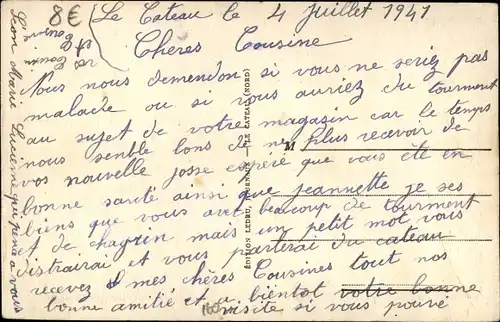 8€
Le Cateau le 4 Juillet 1941
Chères Cousine
Nous nous demendon si vous ne seriez pas
malade ou si vous auriez du tourment
au sujet de votre magasin car le temps
nous semble lons de ne plus recevoir de
vos nouvelle josse espéré que vous éte en
bonne santé ainsi que jeannette je ses
biens que vous avet beaucoup de tourment
et de chagrin mais un petit mot vous
distrairai et vous parterai du cateau
recevez mes chères Cousines tout nos
bonne amitié et a bientot votre bonne
visite si vous pouvé
vos
Cousin
Léon Marie Lucienne qui pense a vous
ÉDITION LEDRU, LE CATEAU (NORD)
M
160